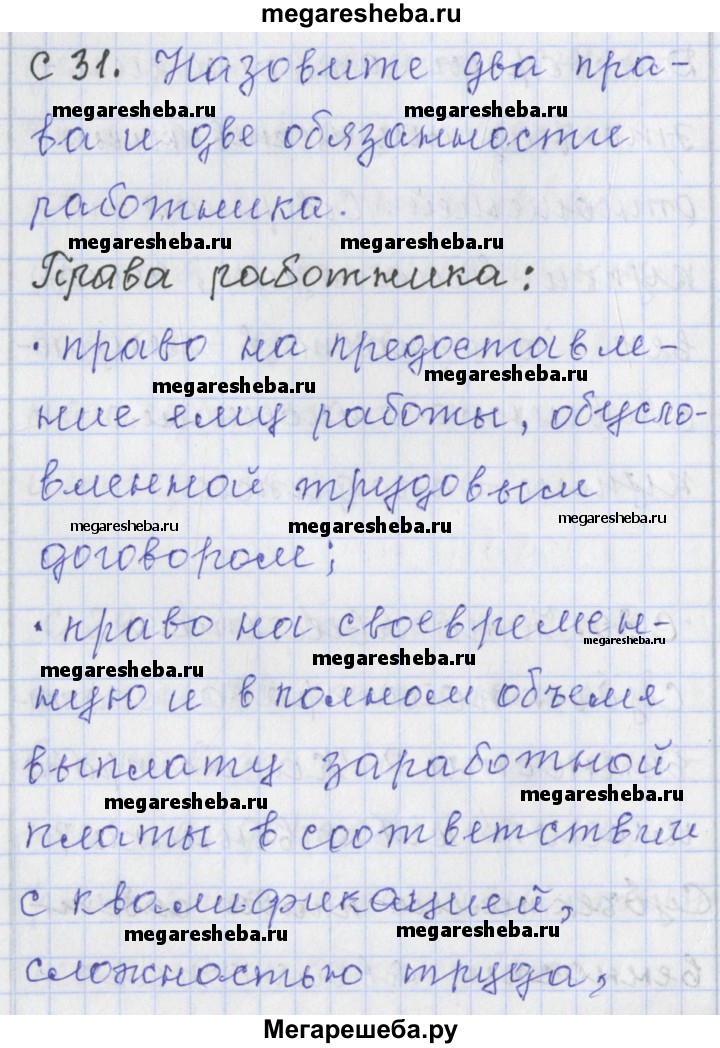 megaresheba.ru
С 31. Назовите два пра-
megaresheba.ru megaresheba.ru
ва и две обязанности
работника.
megaresheba.ru megaresheba.ru
Права работника:
• право на предоставле-
megaresheba.ru megaresheba.ru
ние ему работы, обусло-
вленной трудовым
megaresheba.ru megaresheba.ru megaresheba.ru
договором;
• право на своевремен-
megaresheba.ru megaresheba.ru megaresheba.ru
ную и в полном объеме
выплату заработной
megaresheba.ru megaresheba.ru
платы в соответствии
с квалификацией,
megaresheba.ru megaresheba.ru
сложностью труда,
Мегарешеба.ру